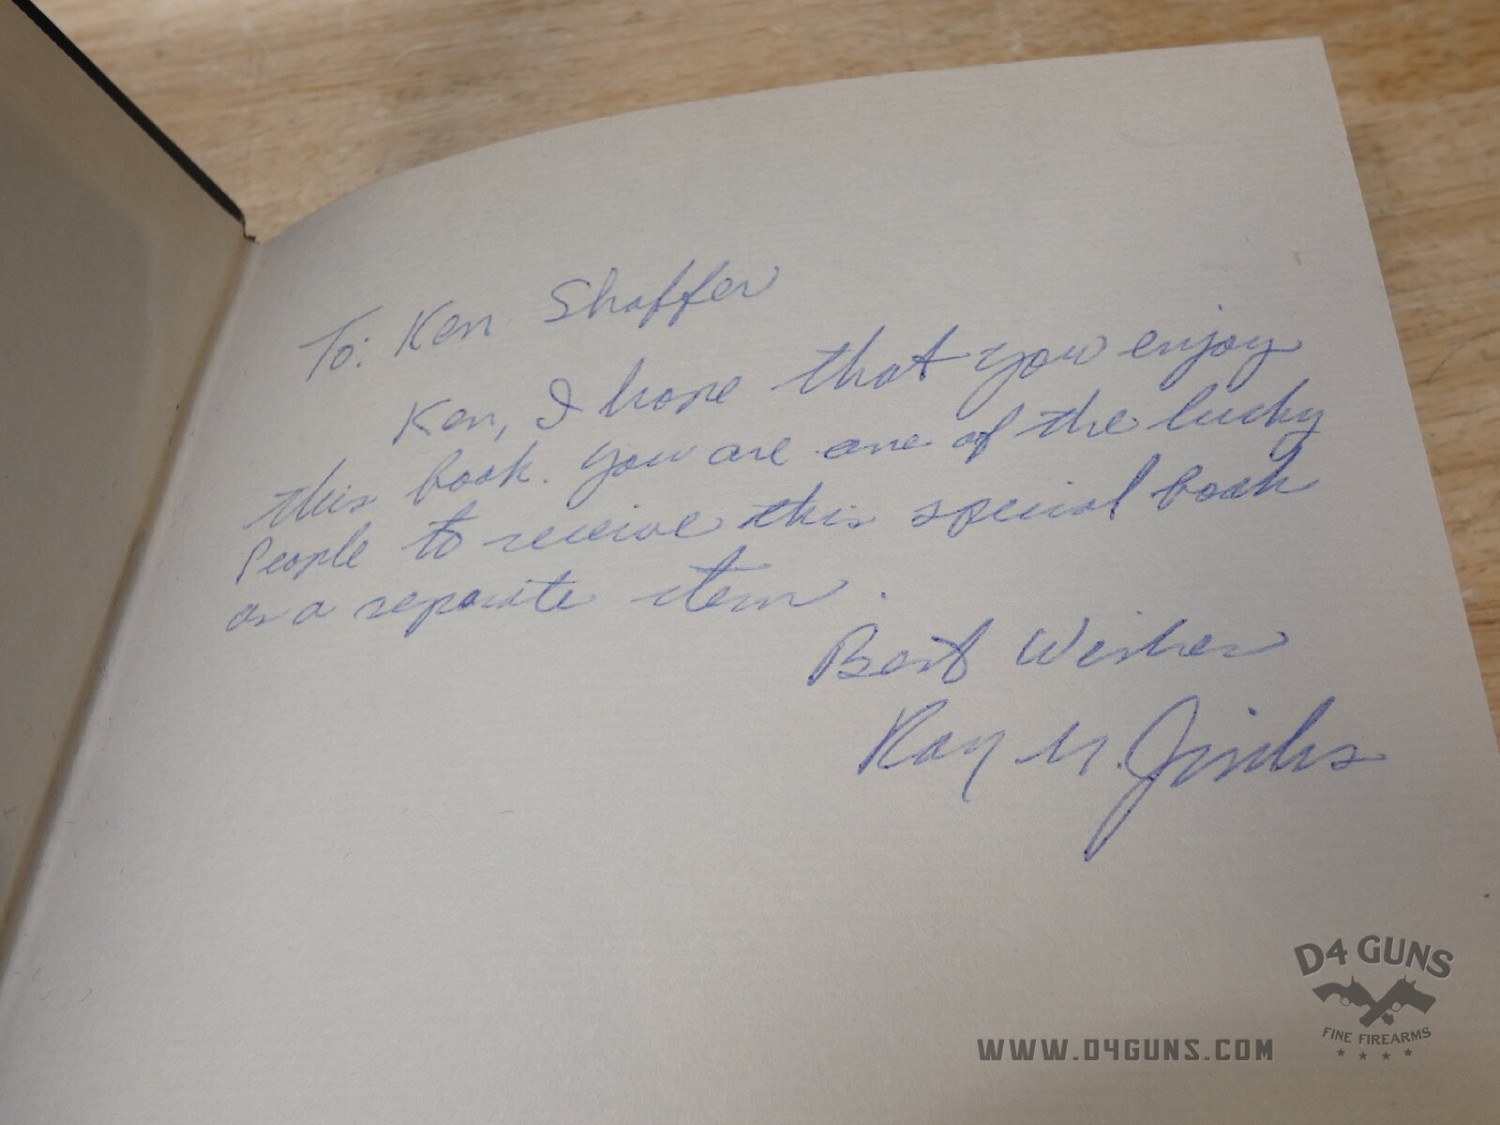 To: Ken Shaffer
Ken, I hope that you enjoy
this book. you are one of the lucky
People to receive this special book
as a separate item.
Best Wishes
Roy G. Jinks
D4 GUNS
FINE FIREARMS
WWW.D4GUNS.COM